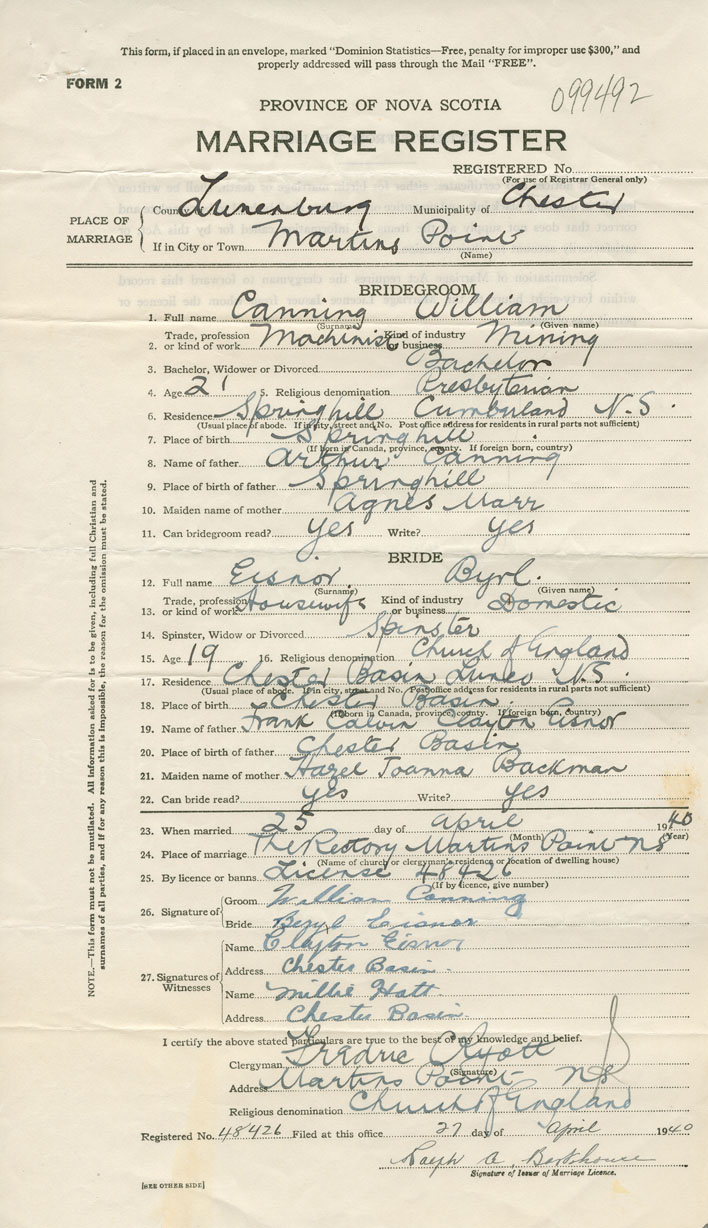 This form, if placed in an envelope, marked "Dominion Statistics—Free, penalty for improper use $300," and
properly addressed will pass through the Mail "FREE".
FORM 2
099492
PROVINCE OF NOVA SCOTIA
MARRIAGE REGISTER
REGISTERED No.
(For use of Registrar General only)
PLACE OF MARRIAGE
County Lunenburg Municipality of Chester
If in City or Town Martins Point
(Name)
BRIDEGROOM
1. Full name Canning William
(Surname) (Given name)
2. Trade, profession or kind of work Machinist Kind of industry or business Mining
3. Bachelor, Widower or Divorced Bachelor
4. Age 21 5. Religious denomination Presbyterian
6. Residence Springhill Cumberland N.S.
(Usual place of abode. If in city, street and No. Post office address for residents in rural parts not sufficient)
7. Place of birth Springhill
(If born in Canada, province, county. If foreign born, country)
8. Name of father Arthur Canning
9. Place of birth of father Springhill
10. Maiden name of mother Agnes Marr
11. Can bridegroom read? yes Write? yes
BRIDE
12. Full name Eisnor Byrl.
(Surname) (Given name)
13. Trade, profession or kind of work Housewife Kind of industry or business Domestic
14. Spinster, Widow or Divorced Spinster
15. Age 19 16. Religious denomination Church of England
17. Residence Chester Basin Lunen N.S.
(Usual place of abode. If in city, street and No. Post office address for residents in rural parts not sufficient)
18. Place of birth Chester Basin.
(If born in Canada, province, county. If foreign born, country)
19. Name of father Frank Calvin Clayton Eisnor
20. Place of birth of father Chester Basin
21. Maiden name of mother Hazel Joanna Backman
22. Can bride read? yes Write? yes
23. When married 25 day of April 1940
(Month) (Year)
24. Place of marriage The Rectory Martins Point NS
(Name of church or clergyman's residence or location of dwelling house)
25. By licence or banns License 48426
(If by licence, give number)
26. Signature of
Groom William Canning
Bride Beryl Eisnor
27. Signatures of Witnesses
Name Clayton Eisnor
Address Chester Basin.
Name Millie Hatt.
Address Chester Basin.
I certify the above stated particulars are true to the best of my knowledge and belief.
Clergyman Fredric Ryott
(Signature)
Address Martins Point NS
Religious denomination Church of England
Registered No. 48426 Filed at this office 27 day of April 1940
Ralph A.
Signature of Issuer of Marriage Licence.
[SEE OTHER SIDE]
NOTE.—This form must not be mutilated. All information asked for is to be given, including full Christian and
surnames of all parties, and if for any reason this is impossible, the reason for the omission must be stated.